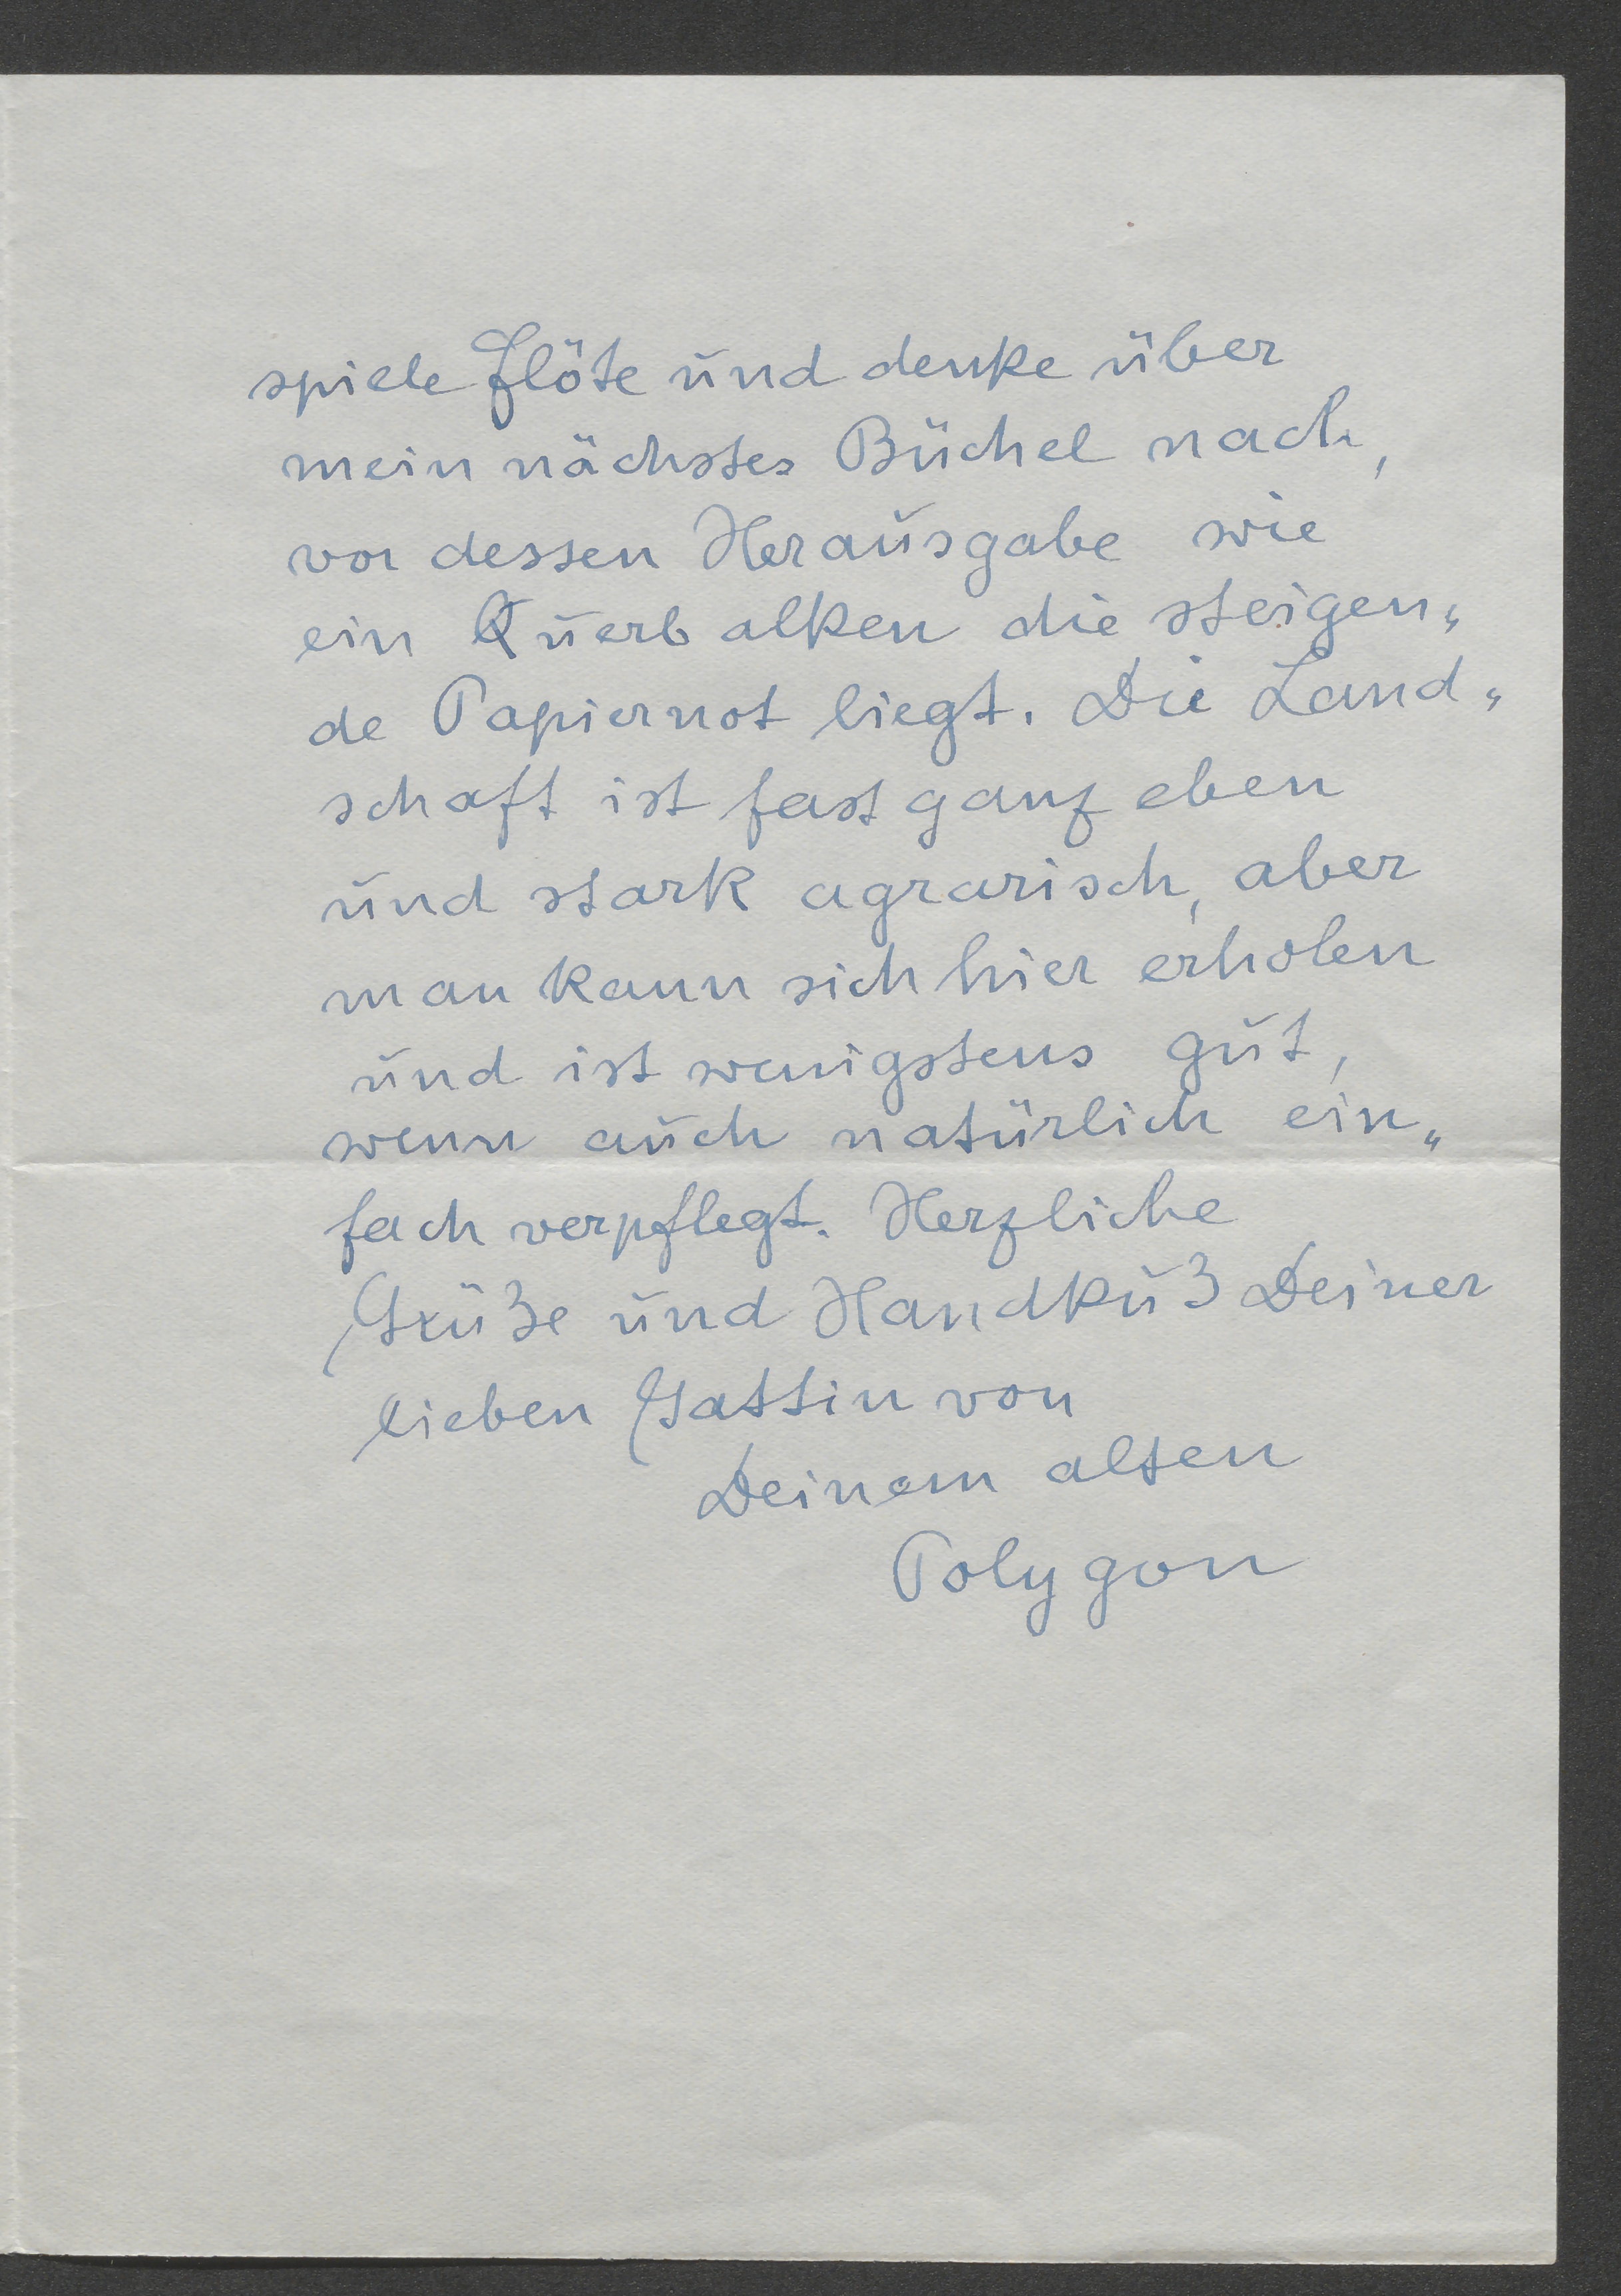 spiele Flöte und denke über
mein nächstes Büchel nach,
vor dessen Herausgabe wie
ein Querbalken die steigen„
de Papiernot liegt. Die Land„
schaft ist fast ganz eben
und stark agrarisch, aber
man kann sich hier erholen
und ist wenigstens gut,
wenn auch natürlich ein„
fach verpflegt. Herzliche
Grüße und Handkuß Deiner
lieben Gattin von
Deinem alten
Polygon